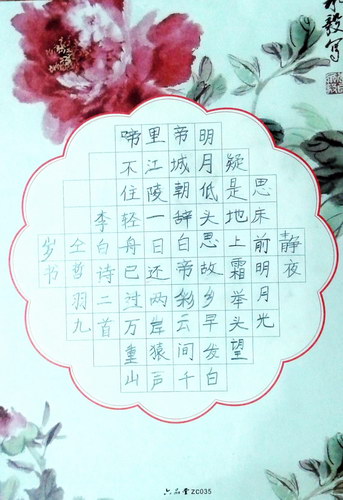 静夜
思床前明月光
疑是地上霜举头望
明月低头思故乡早发白
帝城朝辞白帝彩云间千
里江陵一日还两岸猿声
啼不住轻舟已过万重山
李白诗二首
羽九
岁书
毅写
六品堂 ZC035